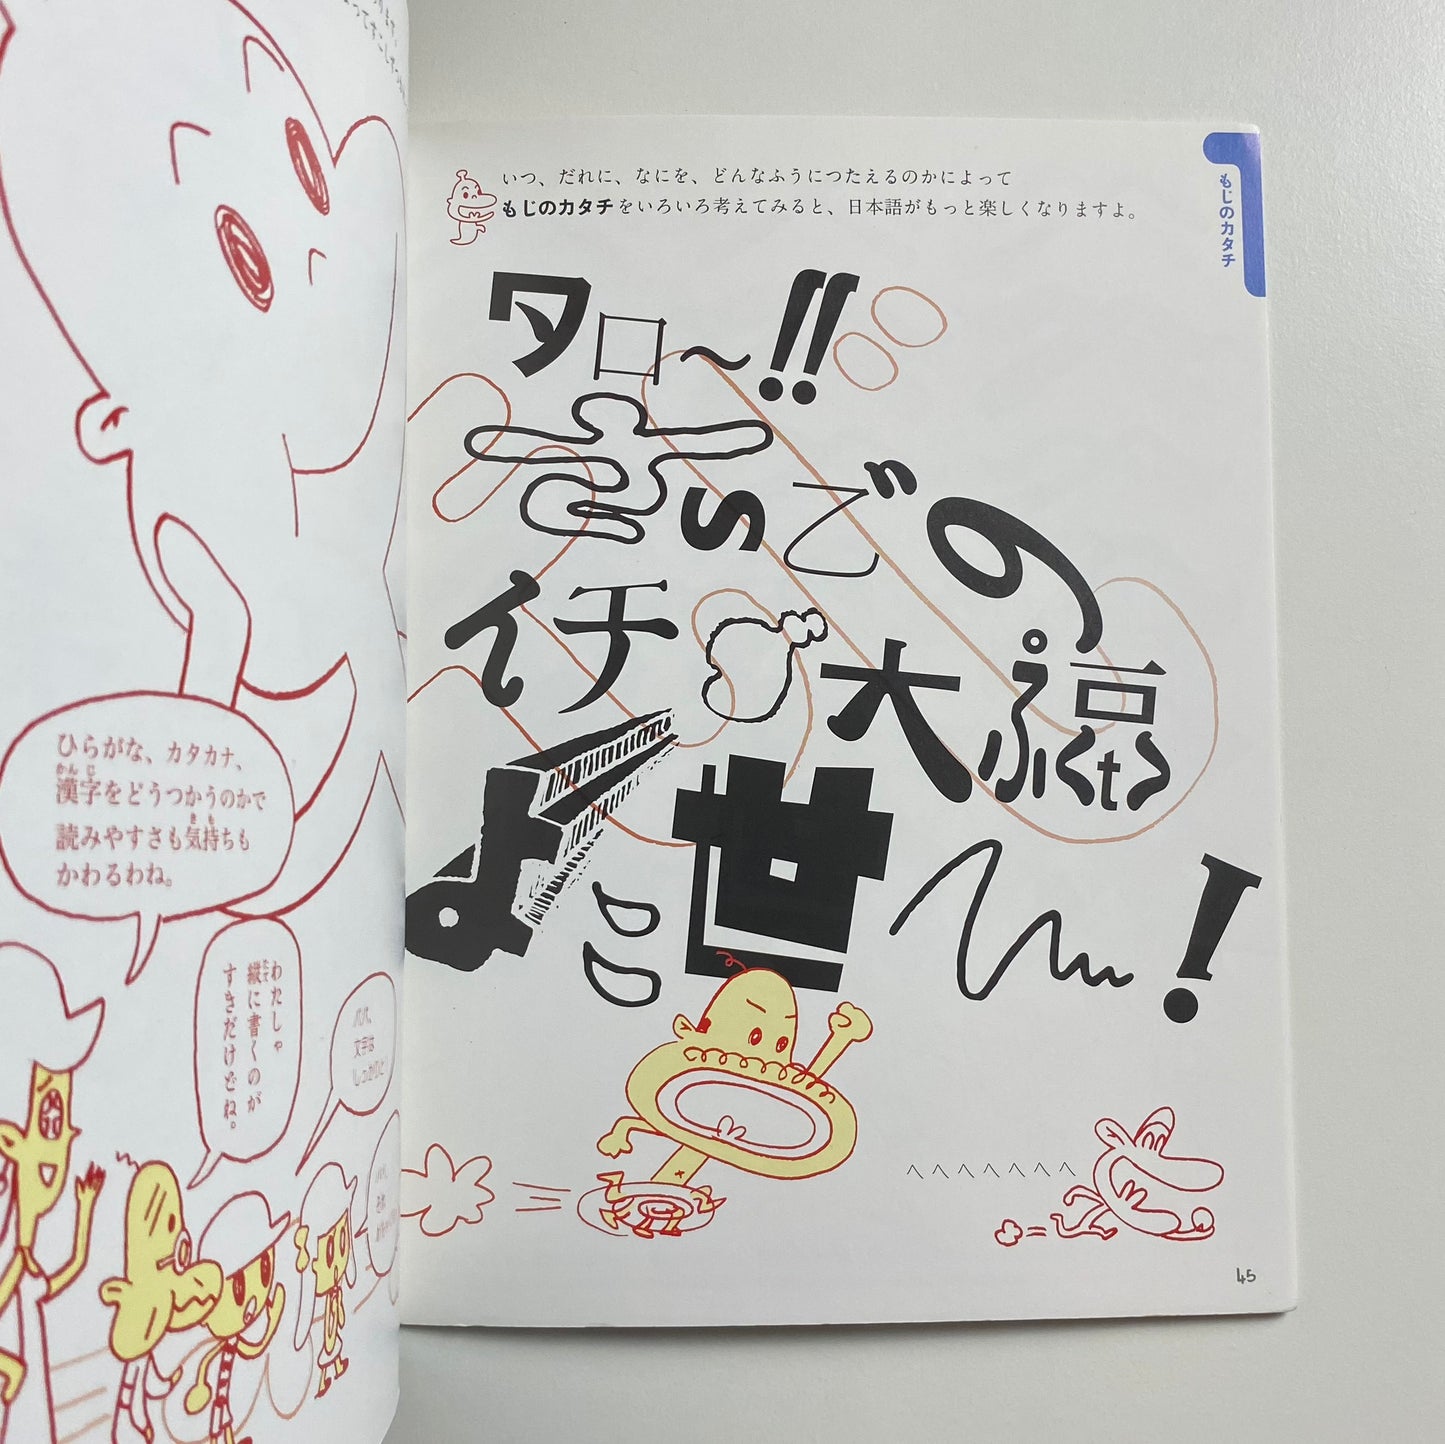 ひらがな、カタカナ、
かんじ
漢字をどうつかうのかで
きも
読みやすさも気持ちも
かわるわね。
わたしゃ
たて
縦に書くのが
すきだけどね。
パパ、
文字は
いつ、だれに、なにを、どんなふうにつたえるのかによって
もじのカタチをいろいろ考えてみると、日本語がもっと楽しくなりますよ。
1
もじのカタチ
タロ〜!!
いでの
イチゴ大福
よこ世〜!
へへへへへへへ
45